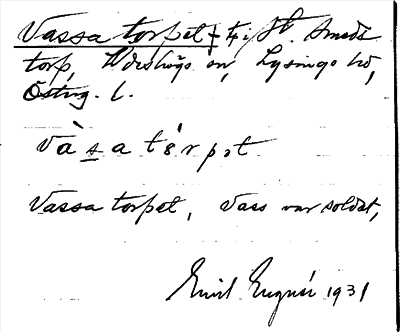 Vassa torpet, tp, St. Smeds
torp, Väderstads sn, Lysings hd,
Östrg. l.
v à s a t ɛ́ r p ə t
Vassa torpet, Vass var soldat,
Emil 1931